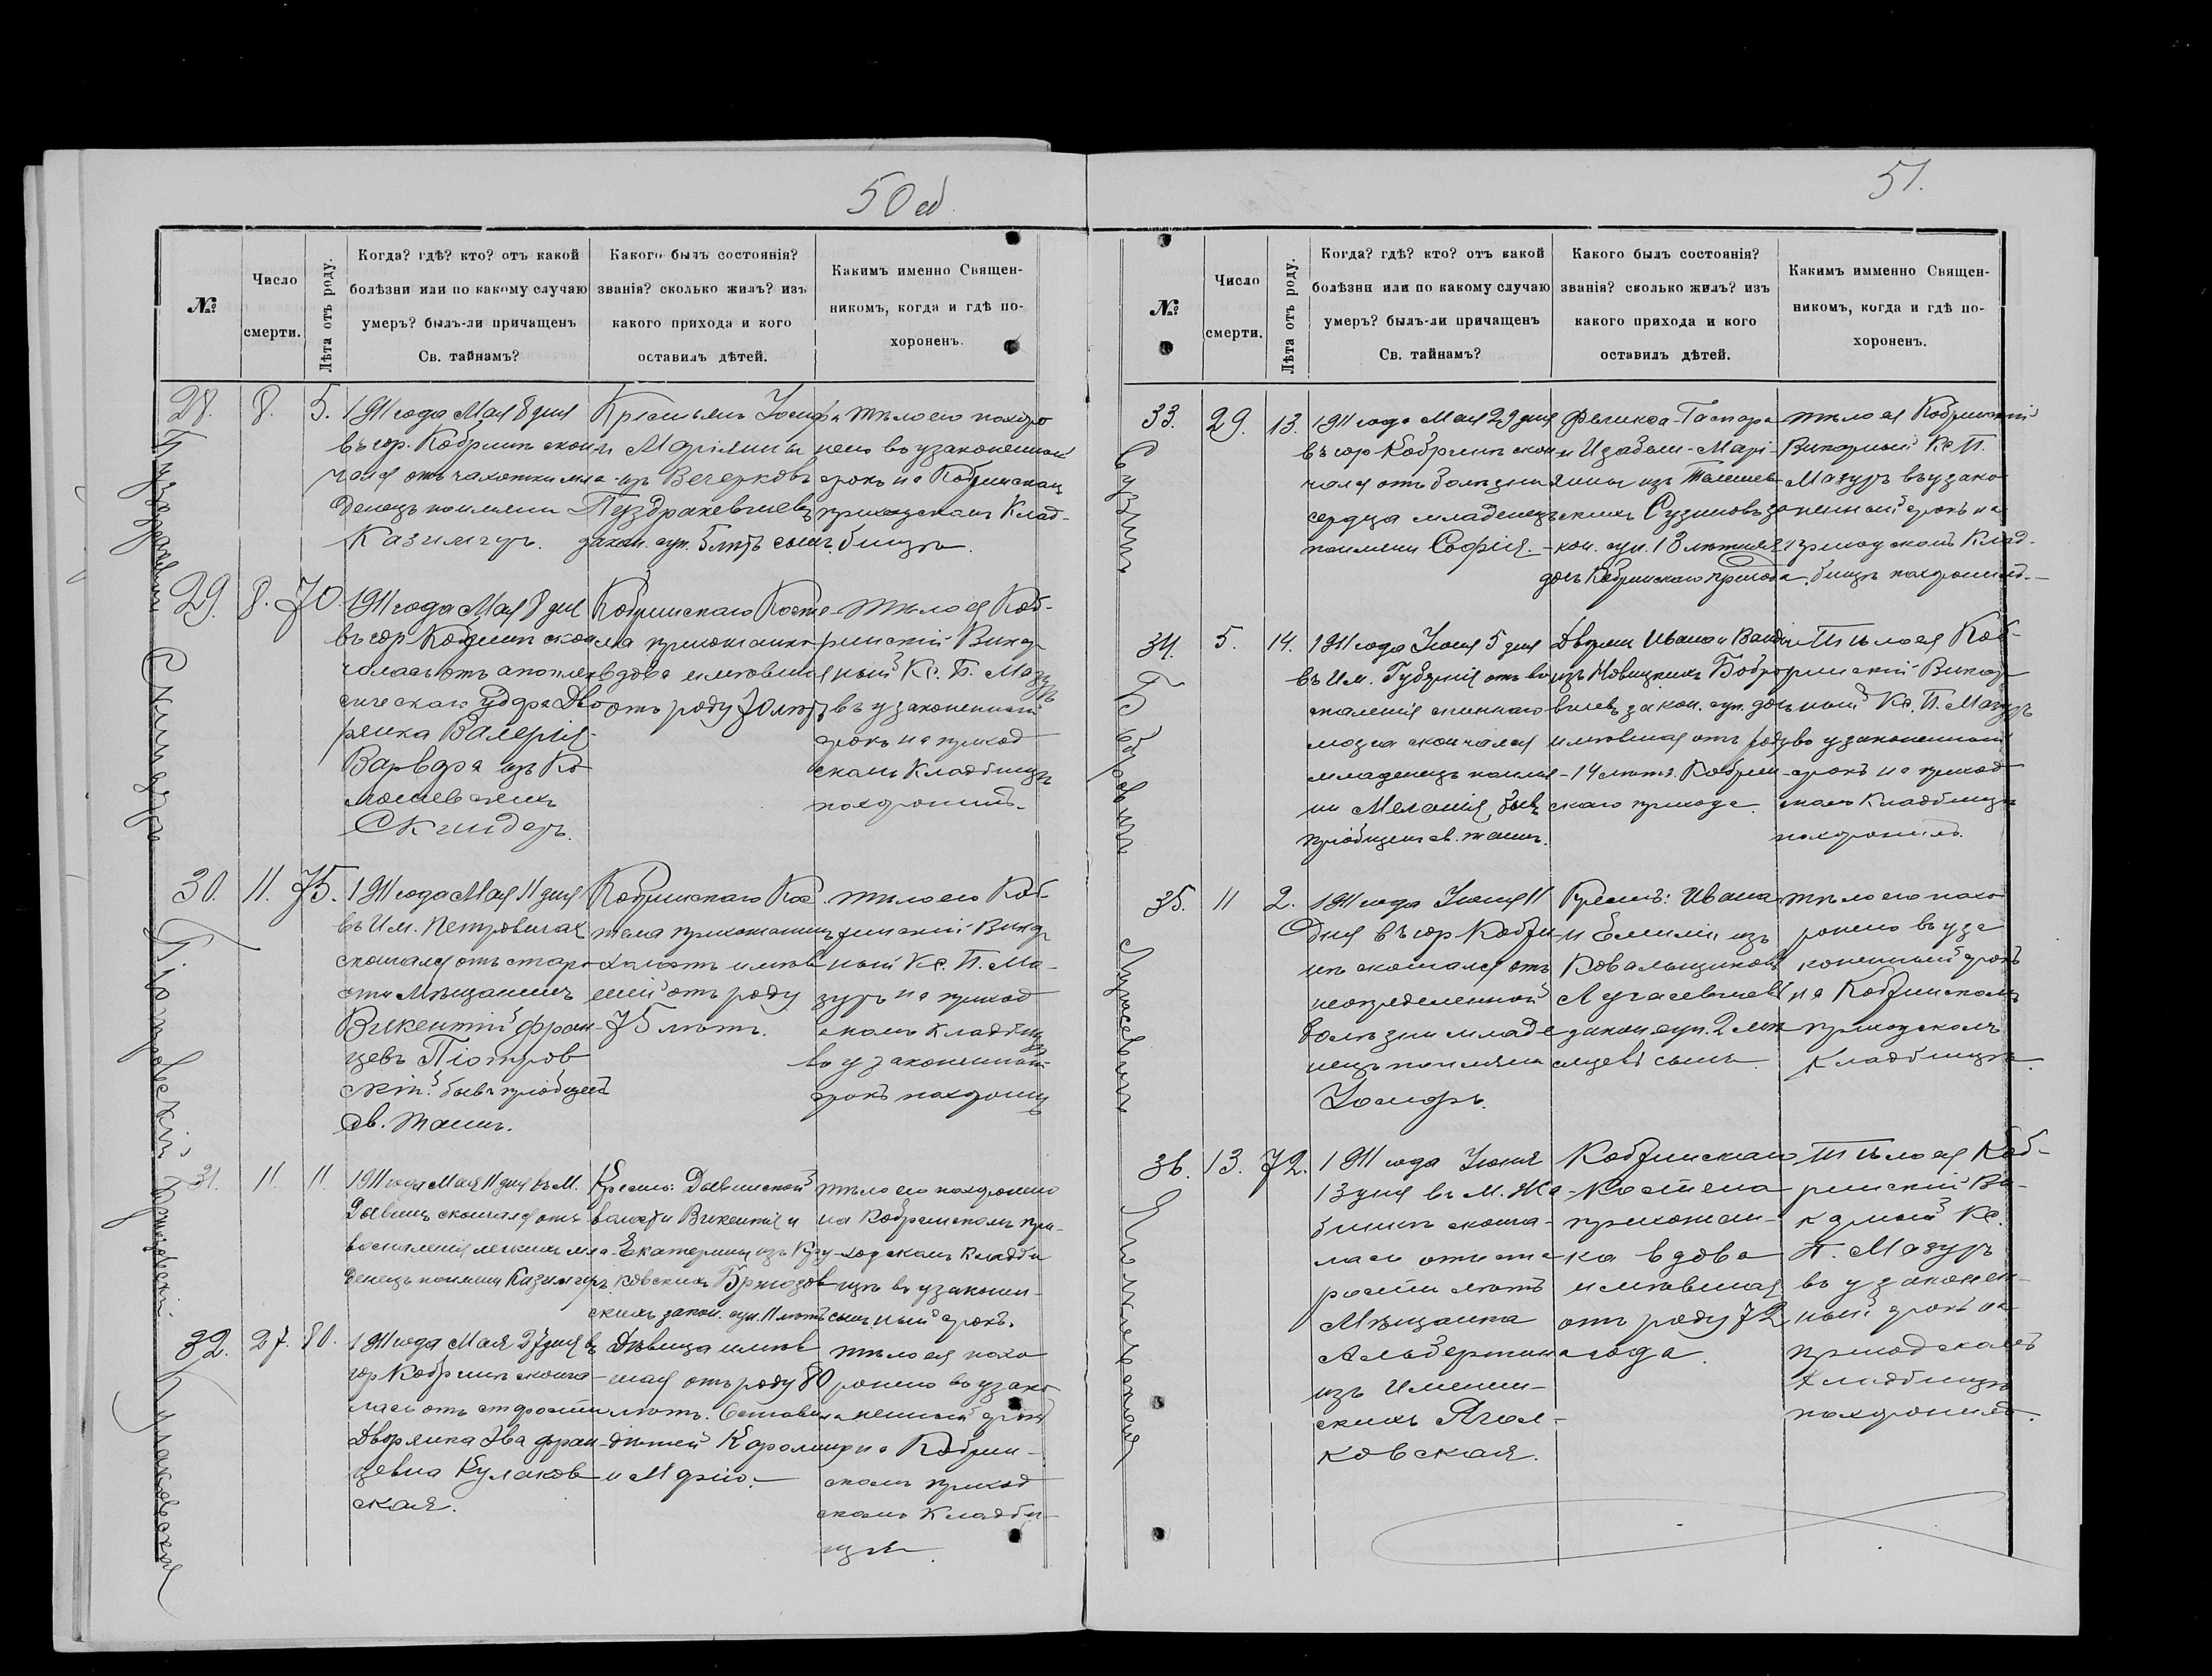 50 об.
№
Число смерти.
Лѣта отъ роду.
Когда? гдѣ? кто? отъ какой
болѣзни или по какому случаю
умеръ? былъ-ли причащенъ
Св. тайнамъ?
Какого былъ состоянія?
званія? сколько жилъ? изъ
какого прихода и кого
оставилъ дѣтей.
Какимъ именно Священ-
никомъ, когда и гдѣ по-
хороненъ.
28. 8. 5.
1911 года Мая 8 дня
въ гор. Кобринѣ скон
чался отъ чахотки мла
денецъ по имени
Казимиръ.
Крестьянъ Іосифа
и Маріянны
изъ Вечерковъ
Пуздракевичевъ
закон. суп. 5 лѣтъ сынъ.
Тѣло его похоро
нено въ узаконенный
срокъ на Кобринскомъ
приходскомъ Клад-
бищѣ.
29. 8. 70.
1911 года Мая 8 дня
въ гор Кобринѣ скон
чалась отъ апоплек
сическаго удара Дво
рянка Валерія-
Варвара изъ Ко
Скиндеръ.
Кобринскаго Косте
ла прихожанка
вдова имѣвшая
отъ роду 70 лѣтъ
Тѣло ея Коб-
ринскій Викар
ный Кс. П. Мазуръ
въ узаконенный
срокъ на приход
скомъ Кладбищѣ
похоронилъ.
30. 11. 75.
1911 года Мая 11 дня
въ Им. Петровичахъ
скончался отъ старо
сти Мѣщанинъ
Викентій Фран-
цевъ Піотров
скій бывъ пріобщенъ
св. таинъ.
Кобринскаго Кос
тела прихожанинъ
холостъ имѣв
шій отъ роду
75 лѣтъ.
Тѣло его Коб
ринскій Викар
ный Кс. П. Ма-
зуръ на приход
скомъ Кладбищѣ
въ узаконенный
срокъ похоронилъ
31. 11. 11.
1911 года Мая 11 дня въ М.
Дывинѣ скончался отъ
воспаленія легкихъ мла
денецъ по имени Казимиръ
Крестьянъ: Дывинской
волости Викентія и
Екатерины изъ
Бржозов
скихъ закон. суп. 11 лѣтъ сынъ
Тѣло его похоронено
на Кобринскомъ при-
ходскомъ Кладби
щѣ въ узаконен-
ный срокъ.
32. 27. 80.
1911 года Мая 27 дня въ
гор Кобринѣ сконча-
лась отъ старости
Дворянка Эва Фран-
цевна Кулаков
ская.
Дѣвица имѣв
шая отъ роду 80
лѣтъ. Оставила
дѣтей
и Марію.
Тѣло ея похо
ронено въ узако
ненный срокъ
на Кобрин-
скомъ приход
скомъ Кладби-
щѣ.
Пуздракевичъ
Скиндеръ
Піотровскій
Бржозовскій
Кулаковская
51.
№
Число смерти.
Лѣта отъ роду.
Когда? гдѣ? кто? отъ какой
болѣзни или по какому случаю
умеръ? былъ-ли причащенъ
Св. тайнамъ?
Какого былъ состоянія?
званія? сколько жилъ? изъ
какого прихода и кого
оставилъ дѣтей.
Какимъ имменно Священ-
никомъ, когда и гдѣ по-
хороненъ.
33. 29. 13.
1911 года Мая 29 дня
въ гор Кобринѣ скон
чался отъ болѣзни
сердца младенецъ
по имени Софія.
Феликса-Гаспара
и Изабели-Марі-
янны изъ
Сузиновъ за
кон. суп. 13 лѣтняя
дочь Кобринскаго прихода
Тѣло ея Кобринскій
Викарный Кс. П.
Мазуръ въ узако
ненный срокъ на
приходскомъ Клад-
бищѣ похоронилъ.
34. 5. 14.
1911 года Іюня 5 дня
въ Им. Губернія отъ во
спаленія спиннаго
мозга скончался
младенецъ по име-
ни Меланія, бывъ
пріобщена св. таинъ.
Дворянъ Ивана и
изъ Новицкихъ Бобро
вичевъ закон. суп. дочь
имѣвшая отъ роду
14 лѣтъ. Кобрин-
скаго прихода.
Тѣло ея Коб-
ринскій Викар
ный Кс. П. Мазуръ
въ узаконенный
срокъ на приход
скомъ Кладбищѣ
похоронилъ.
35. 11 2.
1911 года Іюня 11
Дня въ гор Кобри-
нѣ скончался отъ
неопредѣленной
болѣзни младе
нецъ по имени
Іосифъ.
Крестьянъ: Ивана
и Емиліи изъ
Ковальчуковъ
Лукасевичевъ
закон. суп. 2 мѣ
сынъ.
Тѣло его похо
ронено въ уза
коненный срокъ
на Кобринскомъ
приходскомъ
Кладбищѣ.
36. 13. 72.
1911 года Іюня
13 дня въ М. Жа-
бинкѣ сконча-
лась отъ ста
рости лѣтъ
Мѣщанка
Альбертина
изъ
скихъ Ягол-
ковская.
Кобринскаго
Костела
прихожан-
ка вдова
имѣвшая
отъ роду 72
года.
Тѣло ея Коб-
ринскій Ви-
карный Кс.
П. Мазуръ
въ узаконен-
ный срокъ на
приходскомъ
Кладбищѣ
похоронилъ.
Сузинъ
Бобровичъ
Лукасевичъ
Яголковская